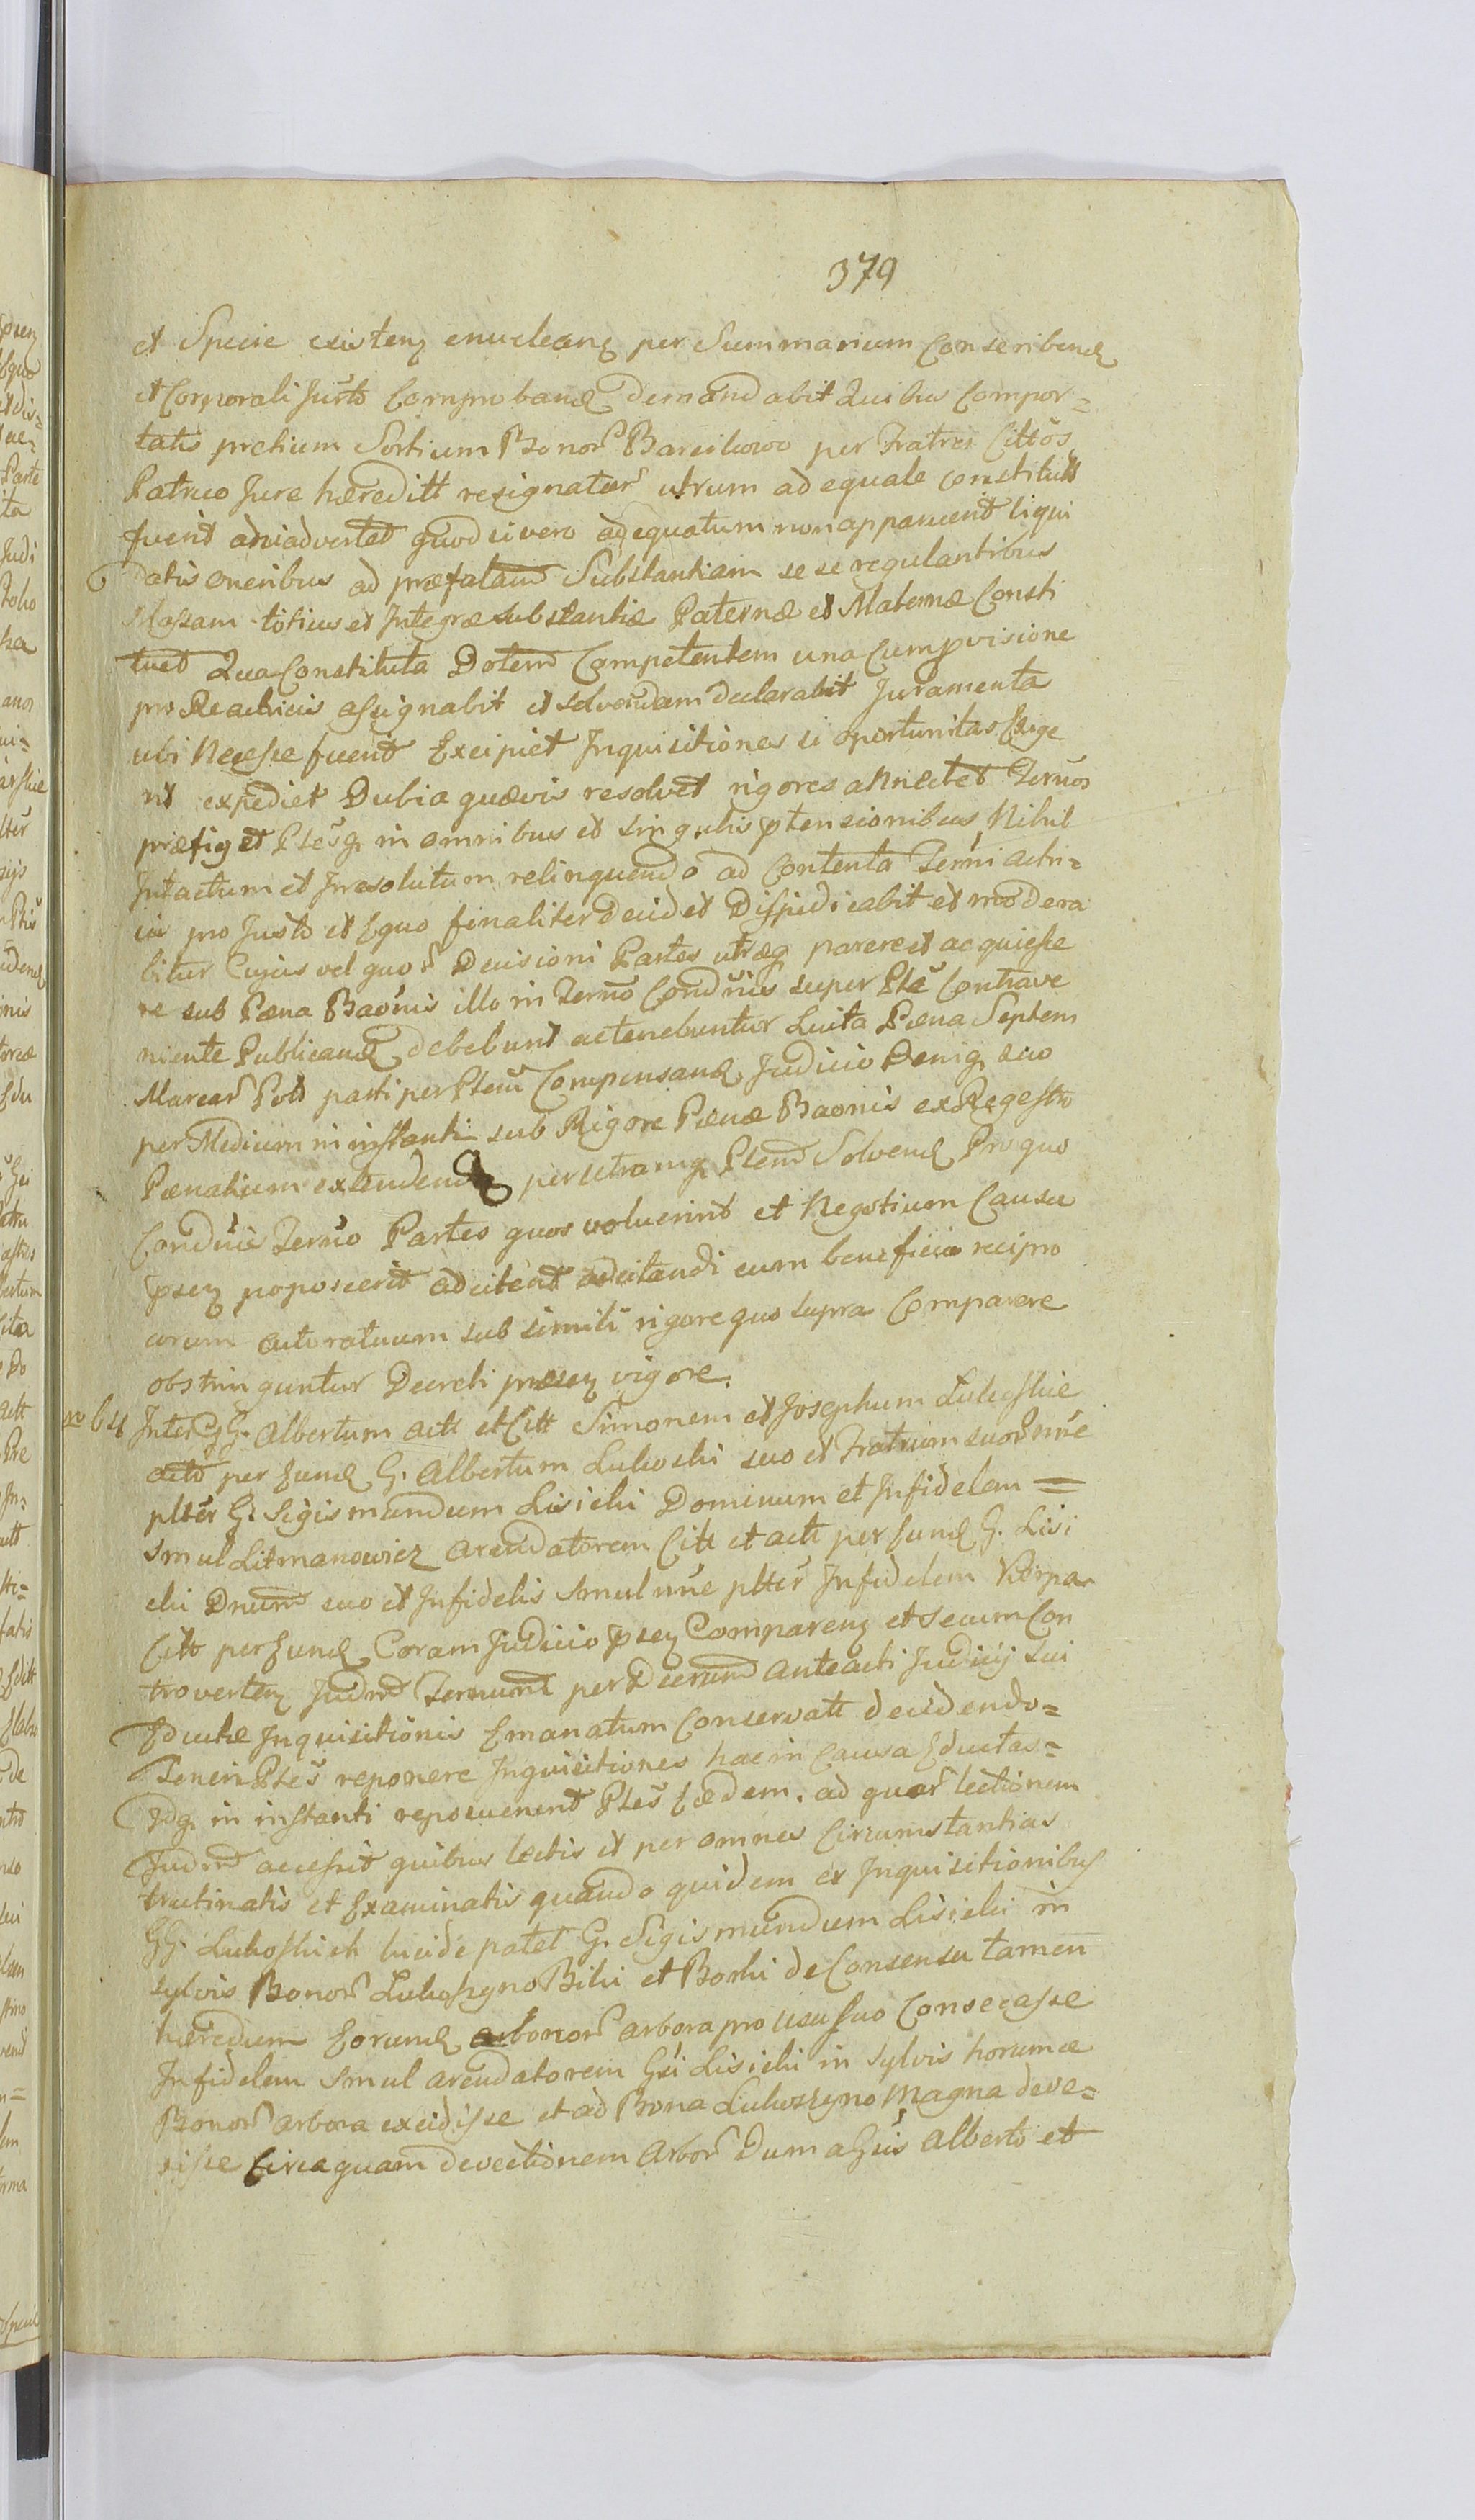 379
et Specie existenz enucleanz per Summarium Conscribend
et Corporali Jurto Comproband demandabit Quibus Compor=
tatis pretium Sortium Bonor Barcikowo per Fratres Cittos
Patruo Jure hereditt resignatar utrum adequale constitutt
fuerit adviadvertet quod si vero adequatum non apparuerit liqui
datis oneribus ad præfatam Substantiam se se regulantibus
Massam totius et Integræ substantiæ Paternæ et Maternæ Consti
tuet Qua Constituta Dotem Competentem una cum pvisione
pro Reactricis assignabit et solvendam declarabit Juramenta
ubi Necesse fuerit Excipiet Inquisitiones si oportunitas Exige
rit expediet Dubia quævis resolvet rigores annectet Ternos
præfiget Ptesq in omnibus et singulis ptensionibus Nihil
Intactum et Irresolutum relinquendo ad Contenta Termi actri=
cis pro Justo et Equo finaliter decidet Dispidicabit et modera
bitur Cujus vel quor Decisioni Partes utræq parere et acquiesce
re sub Pæna Baonis illo in Termo Condnis super Pte Contrave
niente Publicand debebunt ac tenebuntur Luita Pæna Septem
Marcar Pol parti per Ptem Compensand Judicio Deniq suo
per Medium in instanti sub Rigore Pænæ Baonis ex Regestro
Pænalium extendend per utramq Ptem Solvend Pro quo
Condnis Termo Partes quos voluerint et Negotium Causæ
psenz poposcerit adcitent adcitandi cum beneficio recipro
corum actoratuum sub simili rigore quo supra Comparere
obstringuntur Decreti præsenz vigore.
no 64 Inter GG. Albertum actt et Citt Simonem et Josephum Lukoskie
actt per Eund G. Albertum Lukoski suo et Fratrum suor nne
plter G. Sigismundum Lisicki Dominum et Infidelem =
Smul Litmanowicz arendatorem Citt et actt per Eund G. Lisi
cki Dnum suo et Infidelis Smul nne plter Infidelem
Citt per Eund Coram Judicio psenz Comparenz et Secum Con
trovertenz Judm Termum per Decrum anteacti Judicij Sui
Eductæ Inquisitionis Emanatum Conservatt decidendo=
Teneri Ptes reponere Inquisitiones hac in Causa Eductas=
Idq in instanti reposuerunt Ptes Eædem. ad quar lectionem
Judm accessit quibus lectis et per omnes Circumstantias
trutinatis et Examinatis quando quidem ex Inquisitionibus
GG. Lukoskich lucide patet G. Sigismundum Lisicki in
sylvis Bonor Lukoszyno Biki et Borki de Consensu tamen
hæredum Eorund arbonor arbora pro usu suo Consecasse
Infidelem Smul arendatorem Gsi Lisicki in Sylvis horumce
Bonor arbora excidisse et ad Bona Lukoszyno Magna deve=
xisse Circa quam devectionem Arbor Dum a Gsis Alberto et